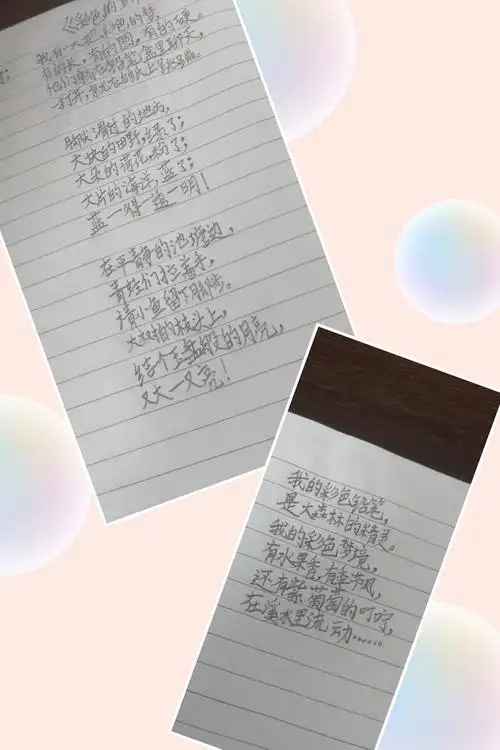 《彩色的梦》
我有一大把彩色的梦,
有的长,有的圆,有的硬。
他们躺在铅笔盒里聊天,
打开,就在白纸上跳蹦。
脚尖滑过的地方,
大块的田野,绿了;
大朵的荷花,粉了;
大片的海洋,蓝了;
蓝—得—透—明!
在平静的池塘边,
青蛙们拉着手,
请小鱼留下脚步。
大树的枝头上,
结个玉盘般的月亮,
又大一又亮!
我的彩色铅笔,
是大森林的精灵。
我的彩色梦境,
有水果香,有季节风,
还有紫葡萄的叮咛,
在溪水里流动……